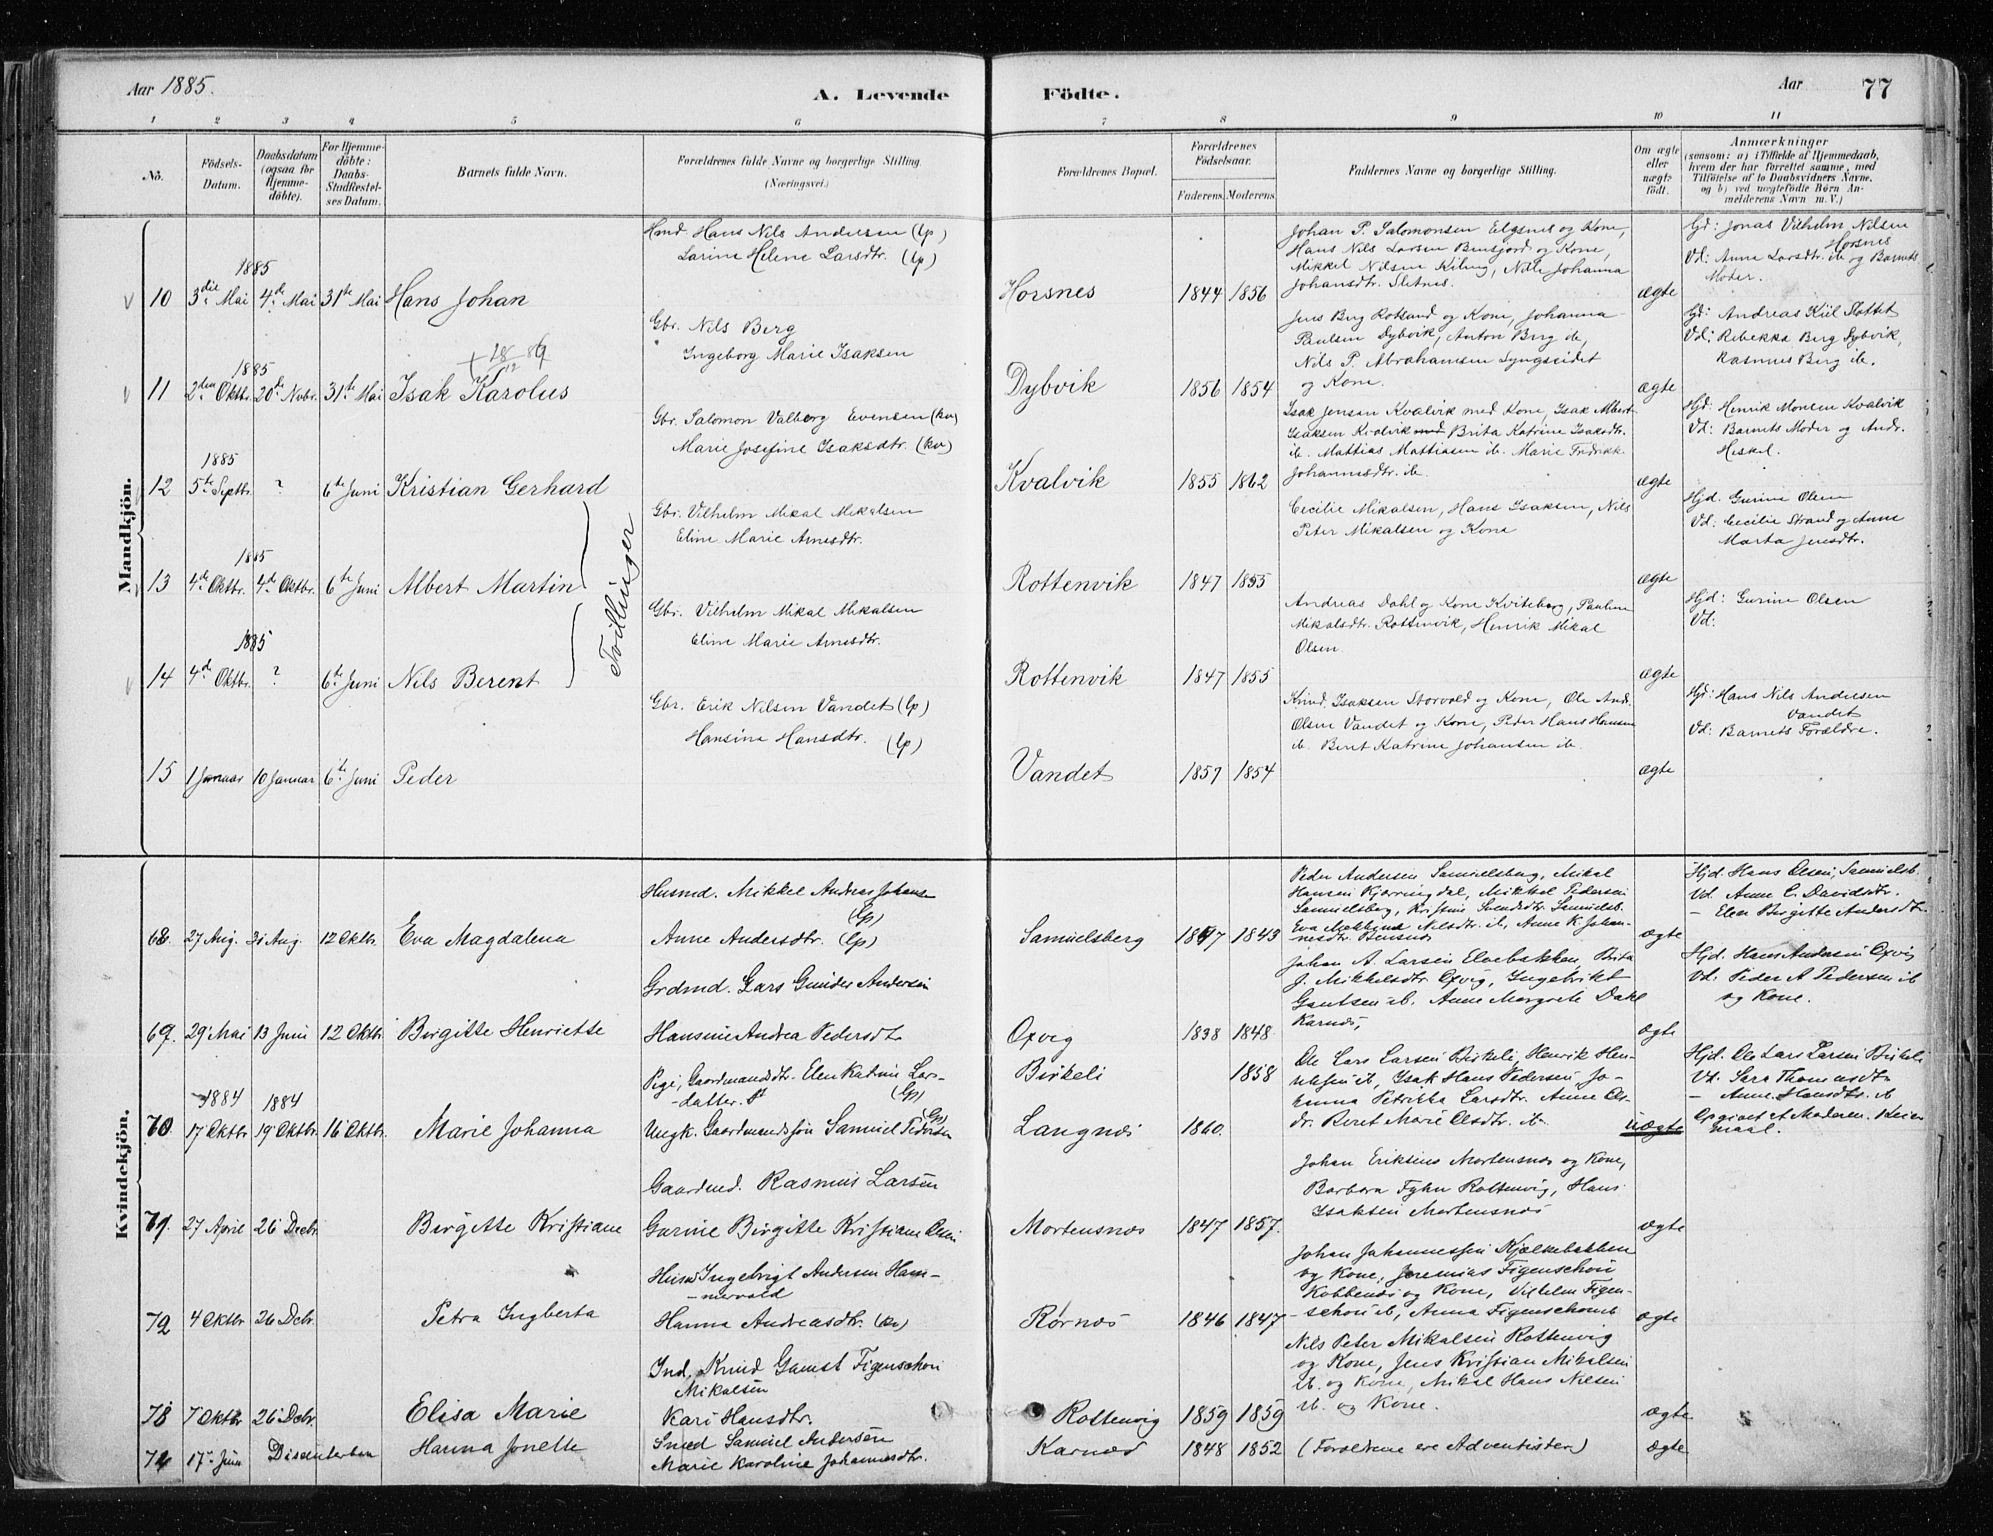 Aar 1885.
A. Levende
Födte.
Aar
77
1 2 3 4 5 6 7 8 9 10 11
No.
Födsels-
Datum.
Daabsdatum
(ogsaa for
Hjemme-
döbte).
For Hjemme-
döbte:
Daabs-
Stadfæstel-
ses Datum.
Barnets fulde Navn.
Forældrenes fulde Navne og borgerlige Stilling.
(Næringsvei.)
Forældrenes Bopæl.
Forældrenes
Födselsaar.
Faderens. Moderens.
Faddernes Navne og borgerlige Stilling.
Om ægte
eller
uægte
födt.
Anmærkninger
(saasom: a) i Tilfælde af Hjemmedaab,
hvem der har forrettet samme, med
Tilföielse af to Daabsvidners Navne,
og b) ved uægtefödte Börn An-
melderens Navn m. V.)
Mandkjön.
Hmd. Hans Nils Andersen (lp)
Larine Helene Larsdtr. (lp)
Johan P. Salomonsen Elgsnes og Kone,
Hans Nils Larsen Bensjord og Kone,
Mikkel Nilsen Kilng, Nille Johanna
Johansdtr. Slitnes.
Hjd: Jonas Vilhelm Nilsen
Horsnes
Vd: Anne Larsdtr. ib og Barnets
Moder.
1885
10 3die Mai 4de Mai 31te Mai Hans Johan
Horsnes 1844 1856 ægte
Gbr. Nils Berg
Ingeborg Marie Isaksen
Jens Berg Rotsund og Kone, Johanna
Paulsen Dybvik, Anton Berg ib,
Nils P. Abrahamsen Lyngseidet
og Kone.
Hjd: Andreas Kiil Slottet
Vd: Rebekka Berg Dybvik,
Rasmus Berg ib.
+ 28/12 86
1885
11 2den Oktbr. 20de Novbr. 31te Mai Isak Karolus
Dybvik 1856 1854 ægte
Gbr. Salomon Valberg Evensen (kv)
Marie Josefine Isaksdtr. (kv)
Isak Jensen Kvalvik med Kone, Isak Albert
Isaksen Kvalvik med Brita Katrine Isaksdtr.
ib. Mattias Mattiasen ib. Marie Fredrikk.
Johannesdtr. ib.
Hjd: Henrik Monsen Kvalvik
Vd: Barnets Moder og Andr.
Heskel.
1885
12 5te Septbr. ? 6te Juni Kristian Gerhard
Kvalvik 1855 1862 ægte
Gbr. Vilhelm Mikal Mikalsen
Eline Marie Arnesdtr.
Cecilie Mikalsen, Hans Isaksen, Nils
Peter Mikalsen og Kone
Hjd. Gurine Olsen
Vd: Cecilie Strand og Anne
Marta Jensdtr.
1885
13 4de Oktbr. 4de Oktbr. 6te Juni Albert Martin
Tvillinger
Rottenvik 1847 1855 ægte
Gbr. Vilhelm Mikal Mikalsen
Eline Marie Arnesdtr.
Andreas Dahl og Kone Kviteberg, Pauline
Mikalsdtr. Rottenvik, Henrik Mikal
Olsen.
Hjd: Gurine Olsen
Vd:
1885
14 4de Oktbr. ? 6te Juni Nils Berent
Rottenvik 1847 1855 ægte
Gbr. Erik Nilsen Vandet (lp)
Hansine Hansdtr. (lp)
Knud Isaksen Storvold og Kone, Ole And.
Olsen Vandet og Kone, Peder Hans Hansen
ib. Beret Katrine Johansen ib.
Hjd: Hans Nils Andersen
Vandet
Vd: Barnets Forældre.
15 1 Januar 10 Januar 6te Juni Peder
Vandet 1857 1854 ægte
Kvindekjön.
Husmd. Mikkel Andreas Johans
(lp)
Peder Andersen Samuelsberg, Mikal
Hansen Kjerringdal, Mikkel Pedersen
Samuelsberg, Kristine Svendsdtr. Samuelsb.
Eva Nilsdtr. ib, Anne K. Johan-
nesdtr. Bensnes
Hjd. Hans Olsen, Samuelsb.
Vd. Anne C. Davidsdtr.
– Elen Birgitte Andersdtr.
68. 27 Aug. 31 Aug. 12 Oktbr. Eva Magdalena
Anne Andersdtr. (lp)
Samuelsberg 1847 1843 ægte
Grdmd. Lars Gunder Andersen
Johan A. Larsen Elvebakken, Brita
J. Mikkelsdtr. Oxvig, Ingebrikt
Gautsen ib. Anne Margrete Dahl
Karnes,
Hjd. Hans Andersen Oxvig
Vd. Peder A Pedersen ib
og Kone.
69. 29 Mai 13 Juni 12 Oktbr. Birgitte Henriette
Hansine Andrea Pedersdtr
Oxvig 1838 1848 ægte
Pige, Gaardmandsdtr. Elen Katrine Lars-
datter. (lp)
Birkeli 1858
Ole Lars Larsen Birkeli, Henrik Hen-
riksen ib, Isak Hans Pedersen, Jo-
hanna Petrikka Larsdtr. Anne Ols-
dr. Beret Marie Olsdtr. ib.
Hjd. Ole Lars Larsen Birkeli
Vd. Sara Thomasdtr
– Anne Hansdtr. ib
Opgivet af Moderen. 1 Leier
maal.
1884 1884
70. 17 Oktbr 19 Oktbr. 16 Oktbr. Marie Johanna
Ungk. Gaardmandssøn Samuel Pedersen (lp)
Langnes 1860. uægte
Gaardmd. Rasmus Larsen
Johan Eriksens Mortensnes og Kone,
Barbara Fyhn Rottenvig, Hans
Isaksen Mortensnes
71. 27 April 26 Decbr. Birgitte Kristiane
Gurine Birgitte Kristiane Olsen
Mortensnes 1847 1857. ægte
Husmd Ingebrigt Andersen Ham-
mervold
Johan Johannessen Kjælkebakken
og Kone, Jeremias Figenschou
Kobbenes og Kone, Vilhelm Figen-
schou ib, Anna Figenschou ib
72 4 Oktbr 26 Dcbr. Petra Ingberta
Hanna Andreasdtr. (kv)
Rørnes 1846 1847 ægte
Ind. Knud Gamst Figenschou
Mikalsen
Nils Peter Mikalsen Rottenvig
og Kone, Jens Kristian Mikalsen
ib. og Kone, Mikal Hans Nilsen
ib. og Kone.
73 7 Oktbr 26 Dcbr. Elisa Marie
Kari Hansdtr.
Rottenvig 1859 1859 ægte
74 17 Juni Dissenterbarn Hanna Jonette
Smed Samuel Andersen
Marie Karoline Johannesdtr.
Karnes 1848 1852 (Forældrene ere Adventister) ægte